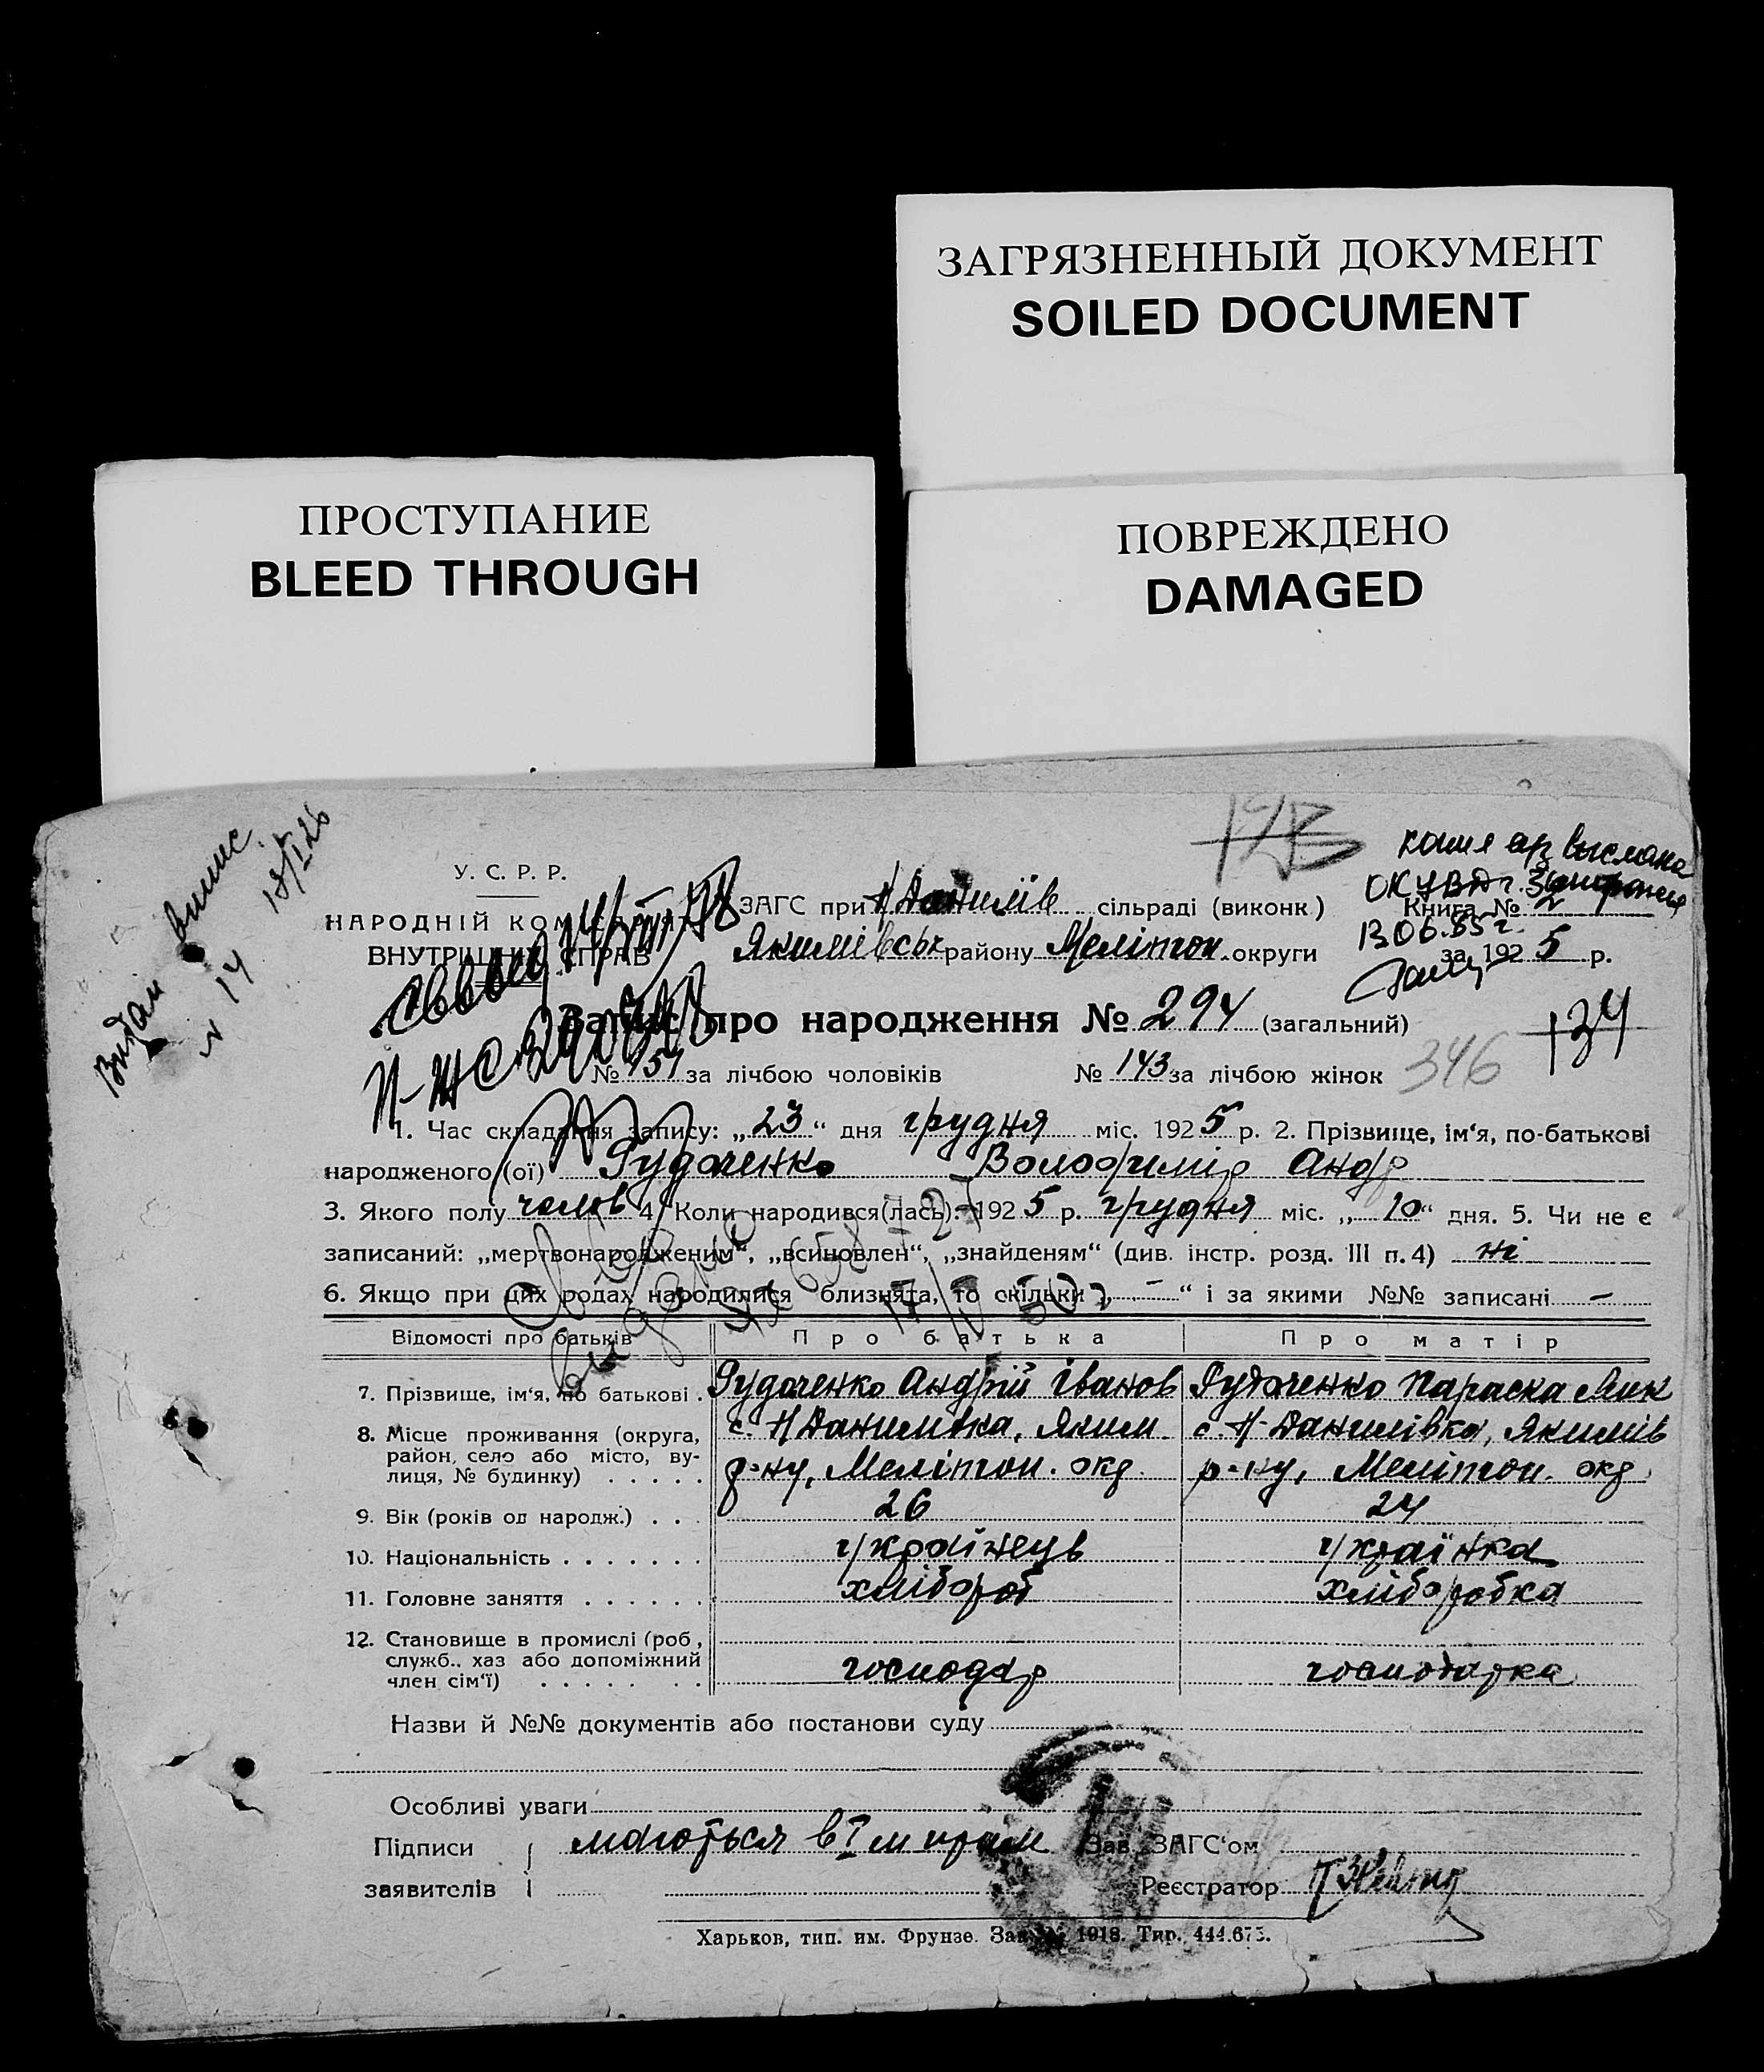 ЗАГРЯЗНЕННЫЙ ДОКУМЕНТ
SOILED DOCUMENT
ПРОСТУПАНИЕ
BLEED THROUGH
ПОВРЕЖДЕНО
DAMAGED
Видан випис
№ 14 18/I 26
У. С. Р. Р.
НАРОДНІЙ
ВНУТРІШНІХ СПРАВ
ЗАГС при Н/Данилів сільраді (виконк)
Якимівськ району Мелітоп. округи
копія вислана
Книга № 2
за 1925 р.
Запис про народження № 294 (загальний)
134
№ 151 за лічбою чоловіків № 143 за лічбою жінок 346
1. Час складання запису: „23“ дня грудня міс. 1925 р. 2. Прізвище, ім‘я, по-батькові
народженого (ої) Рудоченко Володимір Андр
3. Якого полу чолов 4. Коли народився(лась): 1925 р. грудня міс. „10“ дня. 5. Чи не є
записаний: „мертвонародженим“, „всиновлен“, „знайденям“ (див. інстр. розд. III п. 4) ні
6. Якщо при цих родах народилися близнята, то скільки „ – “ і за якими №№ записані –
Відомості про батьків Про батька Про матір
7. Прізвище, ім‘я, по батькові . Рудоченко Андрій Іванов Рудоченко Параска Мик
8. Місце проживання (округа, с. Н/Данилівка, Яким. с. Н-Данилівка, Якимів
район, село або місто, ву-
лиця, № будинку) . . . . . р-ну, Мелітоп. окр. р-ну, Мелітоп. окр.
9. Вік (років од народж.) . . . 26 24
10. Національність . . . . . . . українець українка
11. Головне заняття . . . . . . хлібороб хліборобка
12. Становище в промислі (роб.,
служб., хаз або допоміжний господар господарка
член сім‘ї) . . . . . . .
Назви й №№ документів або постанови суду
Особливі уваги
Підписи маються в І м прим Зав. ЗАГС‘ом
заявителів Реєстратор
Харьков, тип. им. Фрунзе. Зак. № 1918. Тир. 444.675.